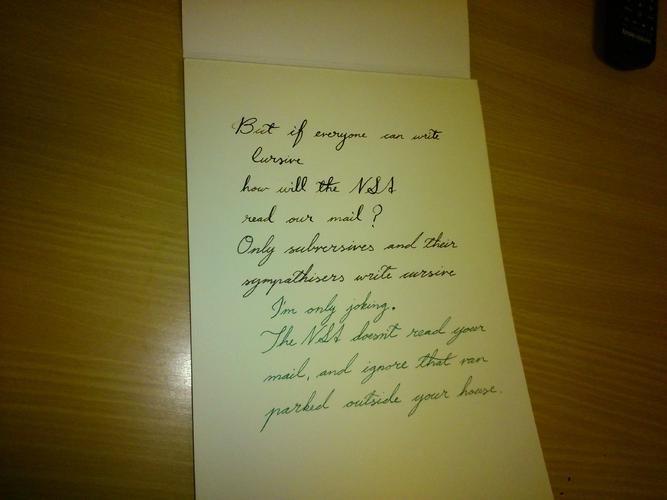 But if everyone can write
cursive
how will the NSA
read our mail?
Only subversives and their
sympathisers write cursive
I'm only joking.
The NSA doesn't read your
mail, and ignore that van
parked outside your house.